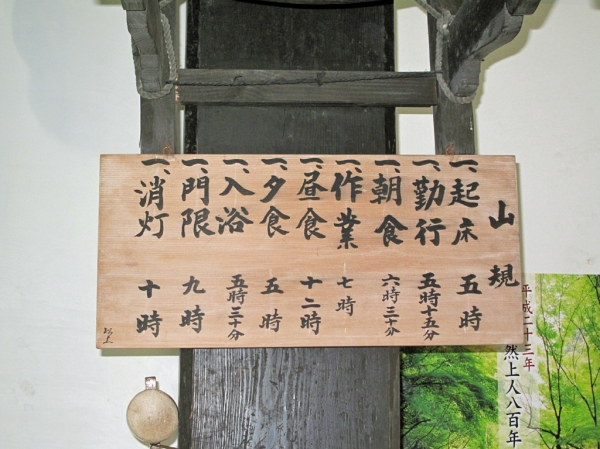 山規
一、起床 五時
一、勤行 五時十五分
一、朝食 六時三十分
一、作業 七時
一、昼食 十二時
一、夕食 五時
一、入浴 五時三十分
一、門限 九時
一、消灯 十時
以上
平成二十三年
然上人八百年